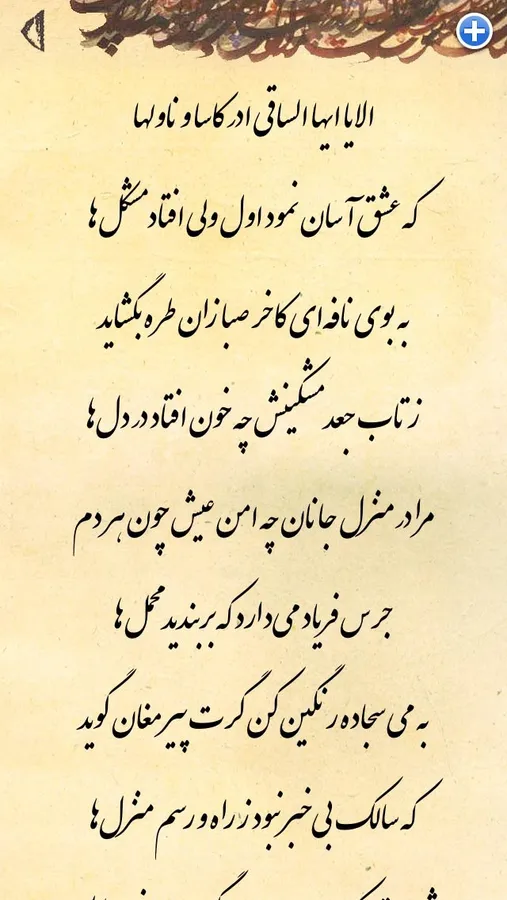 الا یا ایها الساقی ادر کاسا و ناولها
که عشق آسان نمود اول ولی افتاد مشکل‌ها
به بوی نافه‌ای کاخر صبا زان طره بگشاید
ز تاب جعد مشکینش چه خون افتاد در دل‌ها
مرا در منزل جانان چه امن عیش چون هر دم
جرس فریاد می‌دارد که بربندید محمل‌ها
به می سجاده رنگین کن گرت پیر مغان گوید
که سالک بی‌خبر نبود ز راه و رسم منزل‌ها